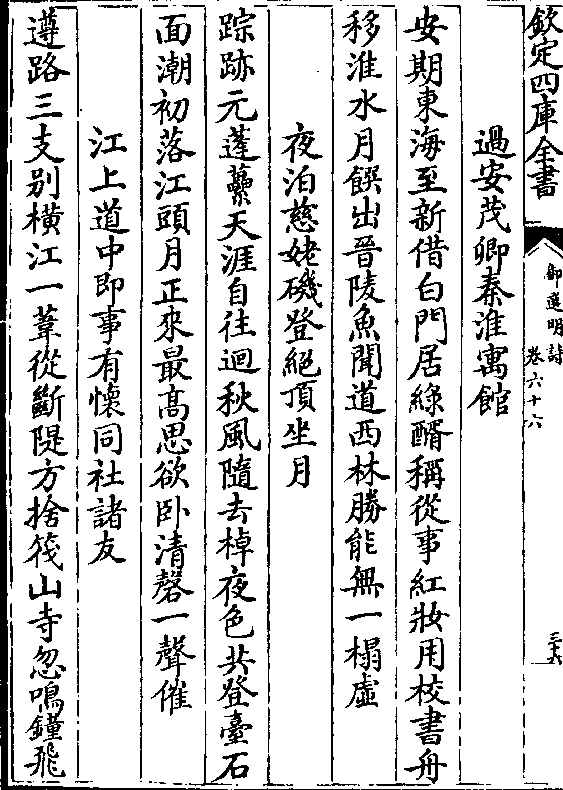 欽定四庫全書
御選明詩
卷六十六
三十六
過安茂卿秦淮寓館
安期東海至新借白門居綠醑稱從事紅妝用校書舟
移淮水月饌出晉陵魚聞道西林勝能無一榻虛
夜泊慈姥磯登絕頂坐月
踪跡元蓬虆天涯自往迴秋風隨去棹夜色共登臺石
面潮初落江頭月正來最高思欲卧清磬一聲催
江上道中即事有懷同社諸友
遵路三支别橫江一葦從斷隄方捨筏山寺忽鳴鐘飛